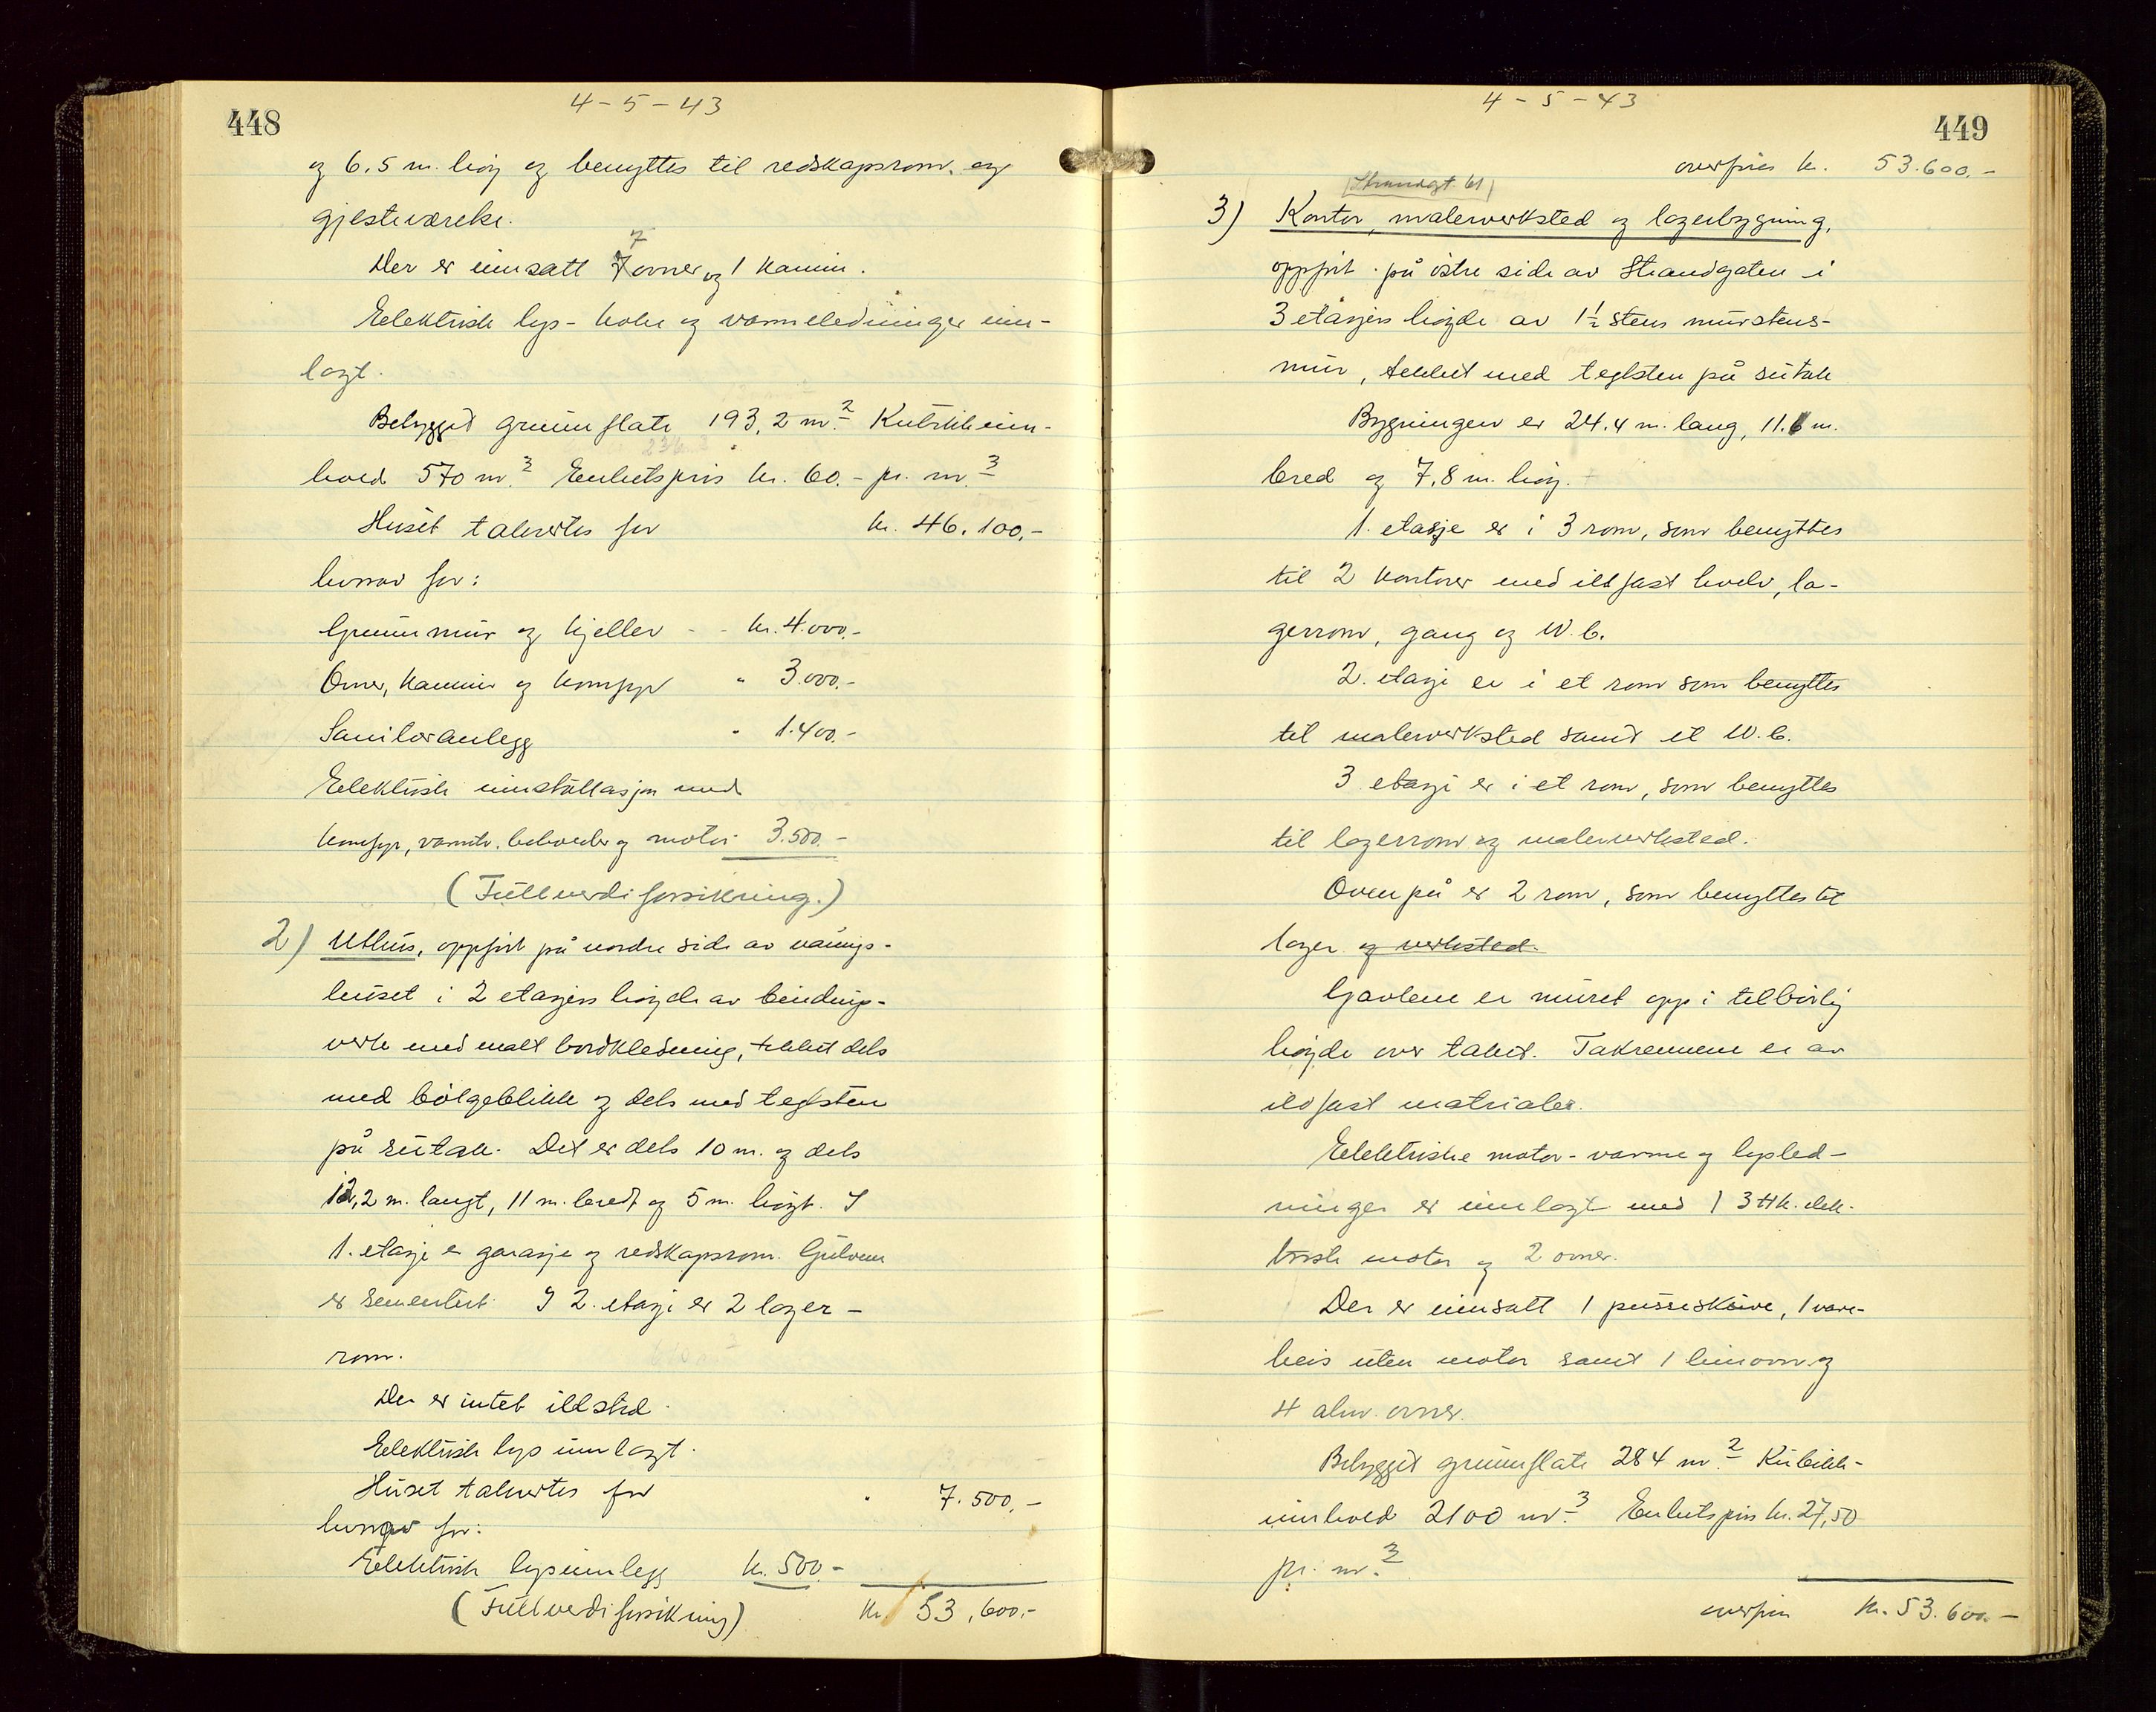 448
4-5-43
og 6,5 m. høy og benyttes til redskapsrom og
gjesteværelse.
7
Der er innsatt 7 ovner og 1 kamin.
Elektrisk lys- koke og varmeledninger inn-
lagt.
Bebygget grunnflate 193,2 m.2 Kubikkinn-
hold 570 m.3 Enhetspris kr. 60.- pr. m.3
Huset takseres for kr. 46.100,-
hvorav for:
Grunnmur og kjeller - - kr. 4.000.-
Ovner, kamin og komfyr " 3.000.-
Sanitæranlegg " 1.400.-
Elektrisk innstallasjon med
komfyr, varmtv. beholder og motor 3.500.-
(Fullverdiforsikring.)
2) Uthus, oppført på nordre side av vånings-
huset i 2 etasjers høyde av bindings-
verk med malt bordkledning, tekket dels
med bølgeblikk og dels med teglsten
på sutak. Det er dels 10 m. og dels
12,2 m. langt, 11 m. bredt og 5 m. høyt. I
1. etasje er garasje og redskapsrom. Gulvene
er sementert. I 2. etasje er 2 lager-
rom.
Der er intet ildsted.
Elektrisk lys innlagt.
Huset takseres for " 7.500,-
hvorav for:
Elektrisk lysinnlegg kr. 500.-
(Fullverdiforsikring) kr. 53,600,-
4-5-43
449
overføres kr. 53.600.-
(Strandgt. 61)
3) Kontor, malerverksted og lagerbygning,
oppført på østre side av Strandgaten i
3 etasjers høyde av 1½ stens murstens-
mur, tekket med teglsten på sutak
Bygningen er 24.4 m. lang, 11.6 m.
bred og 7,8 m. høy.
1. etasje er i 3 rom, som benyttes
til 2 kontorer med ildfast hvelv, la-
gerrom, gang og W.C.
2. etasje er i et rom som benyttes
til malerverksted samt et W.C.
3 etasje er i et rom, som benyttes
til lagerrom og malerverksted.
Ovenpå er 2 rom, som benyttes til
lager og verksted.
Gavlene er muret opp i tilbørlig
høyde over taket. Takrennene er av
ildfast matrialer.
Elektriske motor- varme og lysled-
ninger er innlagt med 1 3 HK. elek-
trisk motor og 2 ovner.
Der er innsatt 1 pusseskive, 1 vare-
heis uten motor samt 1 limovn og
4 alm. ovner.
Bebygget grunnflate 284 m.2 Kubikk-
innhold 2100 m.3 Enhetspris kr. 27,50
pr. m.3
overføres kr. 53.600.-